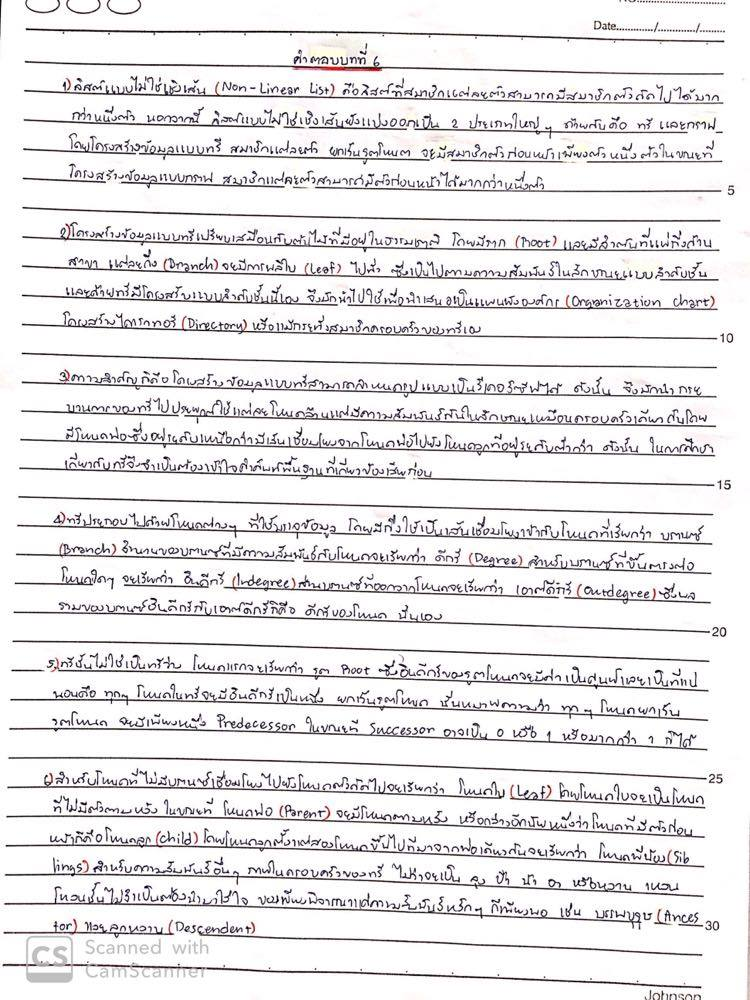 Date............/............/............
คำตอบบทที่ 6
1) ลิสต์แบบไม่ใช่เชิงเส้น (Non-Linear List) คือลิสต์ที่สมาชิกแต่ละตัวสามารถมีสมาชิกตัวถัดไปได้มาก
กว่าหนึ่งตัว นอกจากนี้ ลิสต์แบบไม่ใช่เชิงเส้นยังแบ่งออกเป็น 2 ประเภทใหญ่ๆ ด้วยกันคือ ทรี และกราฟ
โดยโครงสร้างข้อมูลแบบทรี สมาชิกแต่ละตัว ยกเว้นรูตโหนด จะมีสมาชิกตัวก่อนหน้าเพียงตัวหนึ่งตัวในขณะที่
โครงสร้างข้อมูลแบบกราฟ สมาชิกแต่ละตัวสามารถมีตัวก่อนหน้าได้มากกว่าหนึ่งตัว
5
2) โครงสร้างข้อมูลแบบทรีเปรียบเสมือนกับต้นไม้ที่มีอยู่ในธรรมชาติ โดยมีราก (Root) และมีลำต้นที่แผ่กิ่งก้าน
สาขา แต่ละกิ่ง (Branch) จะมีการผลิใบ (Leaf) ไปทั่ว ซึ่งเป็นไปตามความสัมพันธ์ในลักษณะแบบลำดับชั้น
และด้วยทรีมีโครงสร้างแบบลำดับชั้นนี้เอง จึงมักนำไปใช้เพื่อนำเสนอเป็นแผนผังองค์กร (Organization chart)
โครงสร้างไดเรกทอรี (Directory) หรือแม้กระทั่งสมาชิกครอบครัวของทรีเอง
10
3) ความสำคัญก็คือ โครงสร้างข้อมูลแบบทรีสามารถกำหนดรูปแบบเป็นรีเคอร์ซีฟได้ ดังนั้น จึงมักนำกระ
บวนการของทรีไปประยุกต์ใช้แต่ละโหนดล้วนแต่มีความสัมพันธ์กันในลักษณะเหมือนครอบครัวเดียวกันโดย
มีโหนดพ่อซึ่งอยู่ระดับเหนือกว่ามีเส้นเชื่อมโยงจากโหนดพ่อไปยังโหนดลูกที่อยู่ระดับต่ำกว่า ดังนั้น ในการศึกษา
เกี่ยวกับทรีจึงจำเป็นต้องเข้าใจคำศัพท์พื้นฐานที่เกี่ยวข้องเสียก่อน
15
4) ทรีประกอบไปด้วยโหนดต่างๆ ที่ใช้บรรจุข้อมูล โดยมีกิ่งใช้เป็นเส้นเชื่อมโยงเข้ากับโหนดที่เรียกว่า บรานซ์
(Branch) จำนวนของบรานซ์ที่มีความสัมพันธ์กับโหนดจะเรียกว่า ดีกรี (Degree) สำหรับบรานซ์ที่ชี้นตรงต่อ
โหนดใดๆ จะเรียกว่า อินดีกรี (Indegree) ส่วนบรานซ์ที่ออกจากโหนดจะเรียกว่า เอาต์ดีกรี (Outdegree) ซึ่งผล
รวมของบรานซ์อินดีกรีกับเอาต์ดีกรีก็คือ ดีกรีของโหนด นั่นเอง
20
5) ทรีนั้นไม่ใช่เป็นทรีว่าง โหนดแรกจะเรียกว่า รูต Root ซึ่งอินดีกรีของรูตโหนดจะมีค่าเป็นศูนย์เสมอเป็นที่แน่
นอนคือ ทุกๆ โหนดในทรีจะมีอินดีกรีเป็นหนึ่ง ยกเว้นรูตโหนด นั่นหมายความว่า ทุกๆ โหนดยกเว้น
รูตโหนด จะมีเพียงหนึ่ง Predecessor ในขณะที่ Successor อาจเป็น 0 หรือ 1 หรือมากกว่า 1 ก็ได้
25
6) สำหรับโหนดที่ไม่มีบรานซ์เชื่อมโยงไปยังโหนดตัวถัดไปจะเรียกว่า โหนดใบ (Leaf) โดยโหนดใบจะเป็นโหนด
ที่ไม่มีตัวตามหลัง ในขณะที่ โหนดพ่อ (Parent) จะมีโหนดตามหลัง หรือกล่าวอีกนัยหนึ่งว่าโหนดที่มีตัวก่อน
หน้าก็คือโหนดลูก (Child) โดยโหนดลูกตั้งแต่สองโหนดขึ้นไปที่มาจากพ่อเดียวกันจะเรียกว่า โหนดพี่น้อง (Sib
lings) สำหรับความสัมพันธ์อื่นๆ ภายในครอบครัวของทรี ไม่ว่าจะเป็น ลุง ป้า น้า อา หรือหลาน เหลน
โหลนนั้นไม่จำเป็นต้องนำมาใส่ใจ ขอเพียงพิจารณาแค่ความสัมพันธ์หลักๆ ก็เพียงพอ เช่น บรรพบุรุษ (Ances
tor) และลูกหลาน (Descendent)
30
CS Scanned with
CamScanner
Johnson